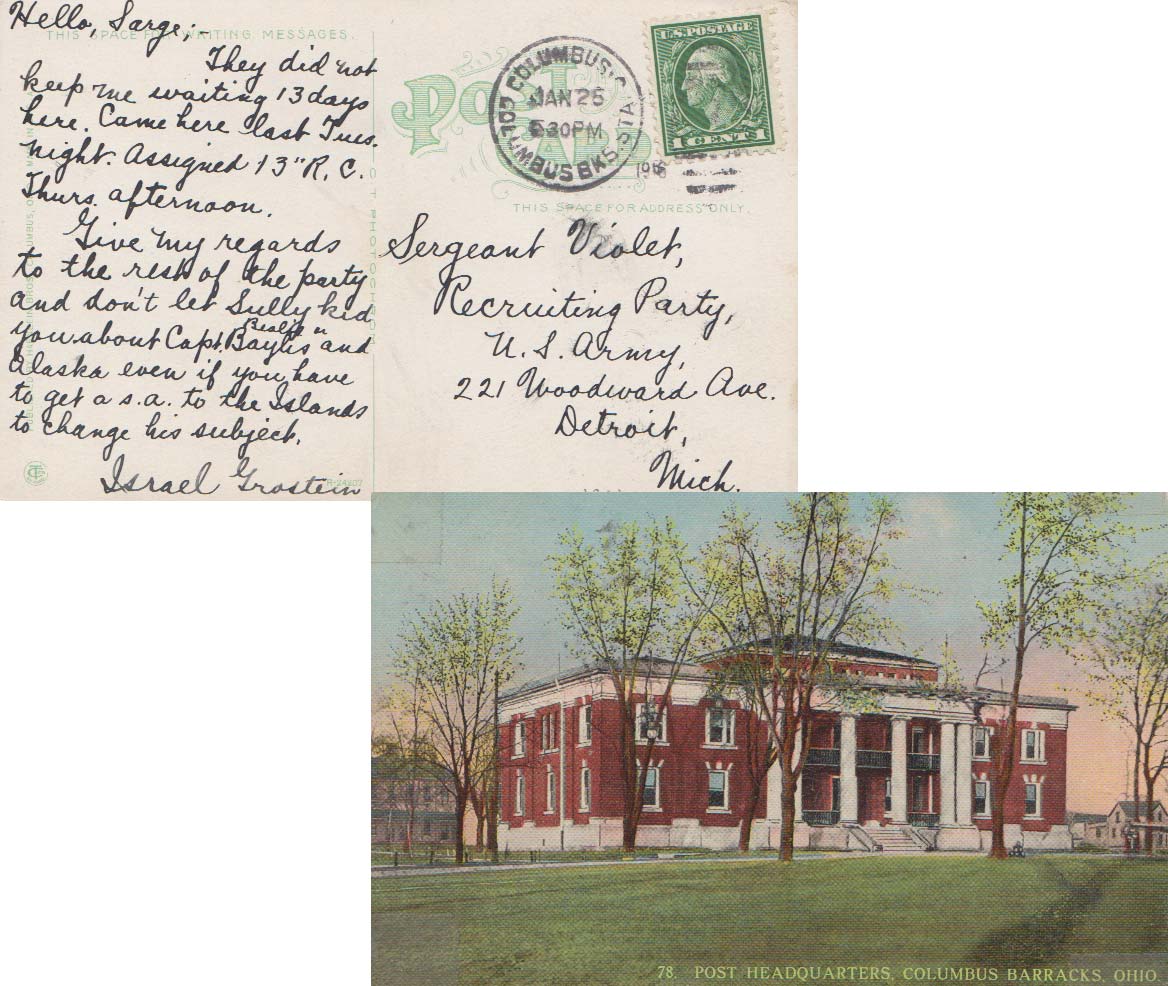 Hello, Sarge;-
THIS SPACE FOR WRITING MESSAGES.
They did not
keep me waiting 13 days
here. Came here last Tues.
night. Assigned 13" R. C.
Thurs. afternoon.
Give my regards
to the rest of the party
and don't let Sully kid
you about Capt. Baylis and
Alaska even if you have
to get a s.a. to the Islands
to change his subject.
Israel Grostein
R-24207
POST CARD
COLUMBUS, O.
JAN 25
30PM
COLUMBUS BKS. STA.
U.S. POSTAGE
1 CENT 1
THIS SPACE FOR ADDRESS ONLY.
Sergeant Violet,
Recruiting Party,
U. S. Army,
221 Woodward Ave.
Detroit,
Mich.
78. POST HEADQUARTERS, COLUMBUS BARRACKS, OHIO.